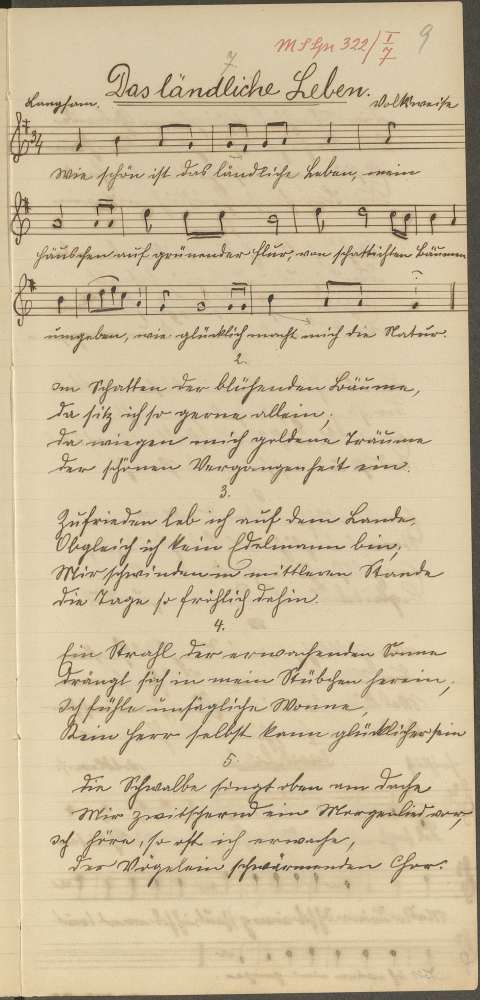 9
MSGn 322/I/7
7
Das ländliche Leben.
Langsam.
Volksweise
3/4
Wie schön ist das ländliche Leben, mein
Häuschen auf grünender Flur, von schattichten Bäumen
umgeben, wie glücklich macht mich die Natur.
2.
Im Schatten der blühenden Bäume,
Da sitz ich so gerne allein,
Da wiegen mich goldene Träume
Der schönen Vergangenheit ein.
3.
Zufrieden leb ich auf dem Lande,
Obgleich ich kein Edelmann bin,
Mir schwinden in mittleren Stande
Die Tage so fröhlich dahin.
4.
Ein Strahl der erwachenden Sonne
Drängt sich in mein Stübchen herein,
Ich fühle unsägliche Wonne,
Kein Herr selbst kann glücklicher sein
5.
Die Schwalbe singt oben am Dache
Mir zwitschernd ein Morgenlied vor,
Ich höre, so oft ich erwache,
Der Vögelein schwärmenden Chor.